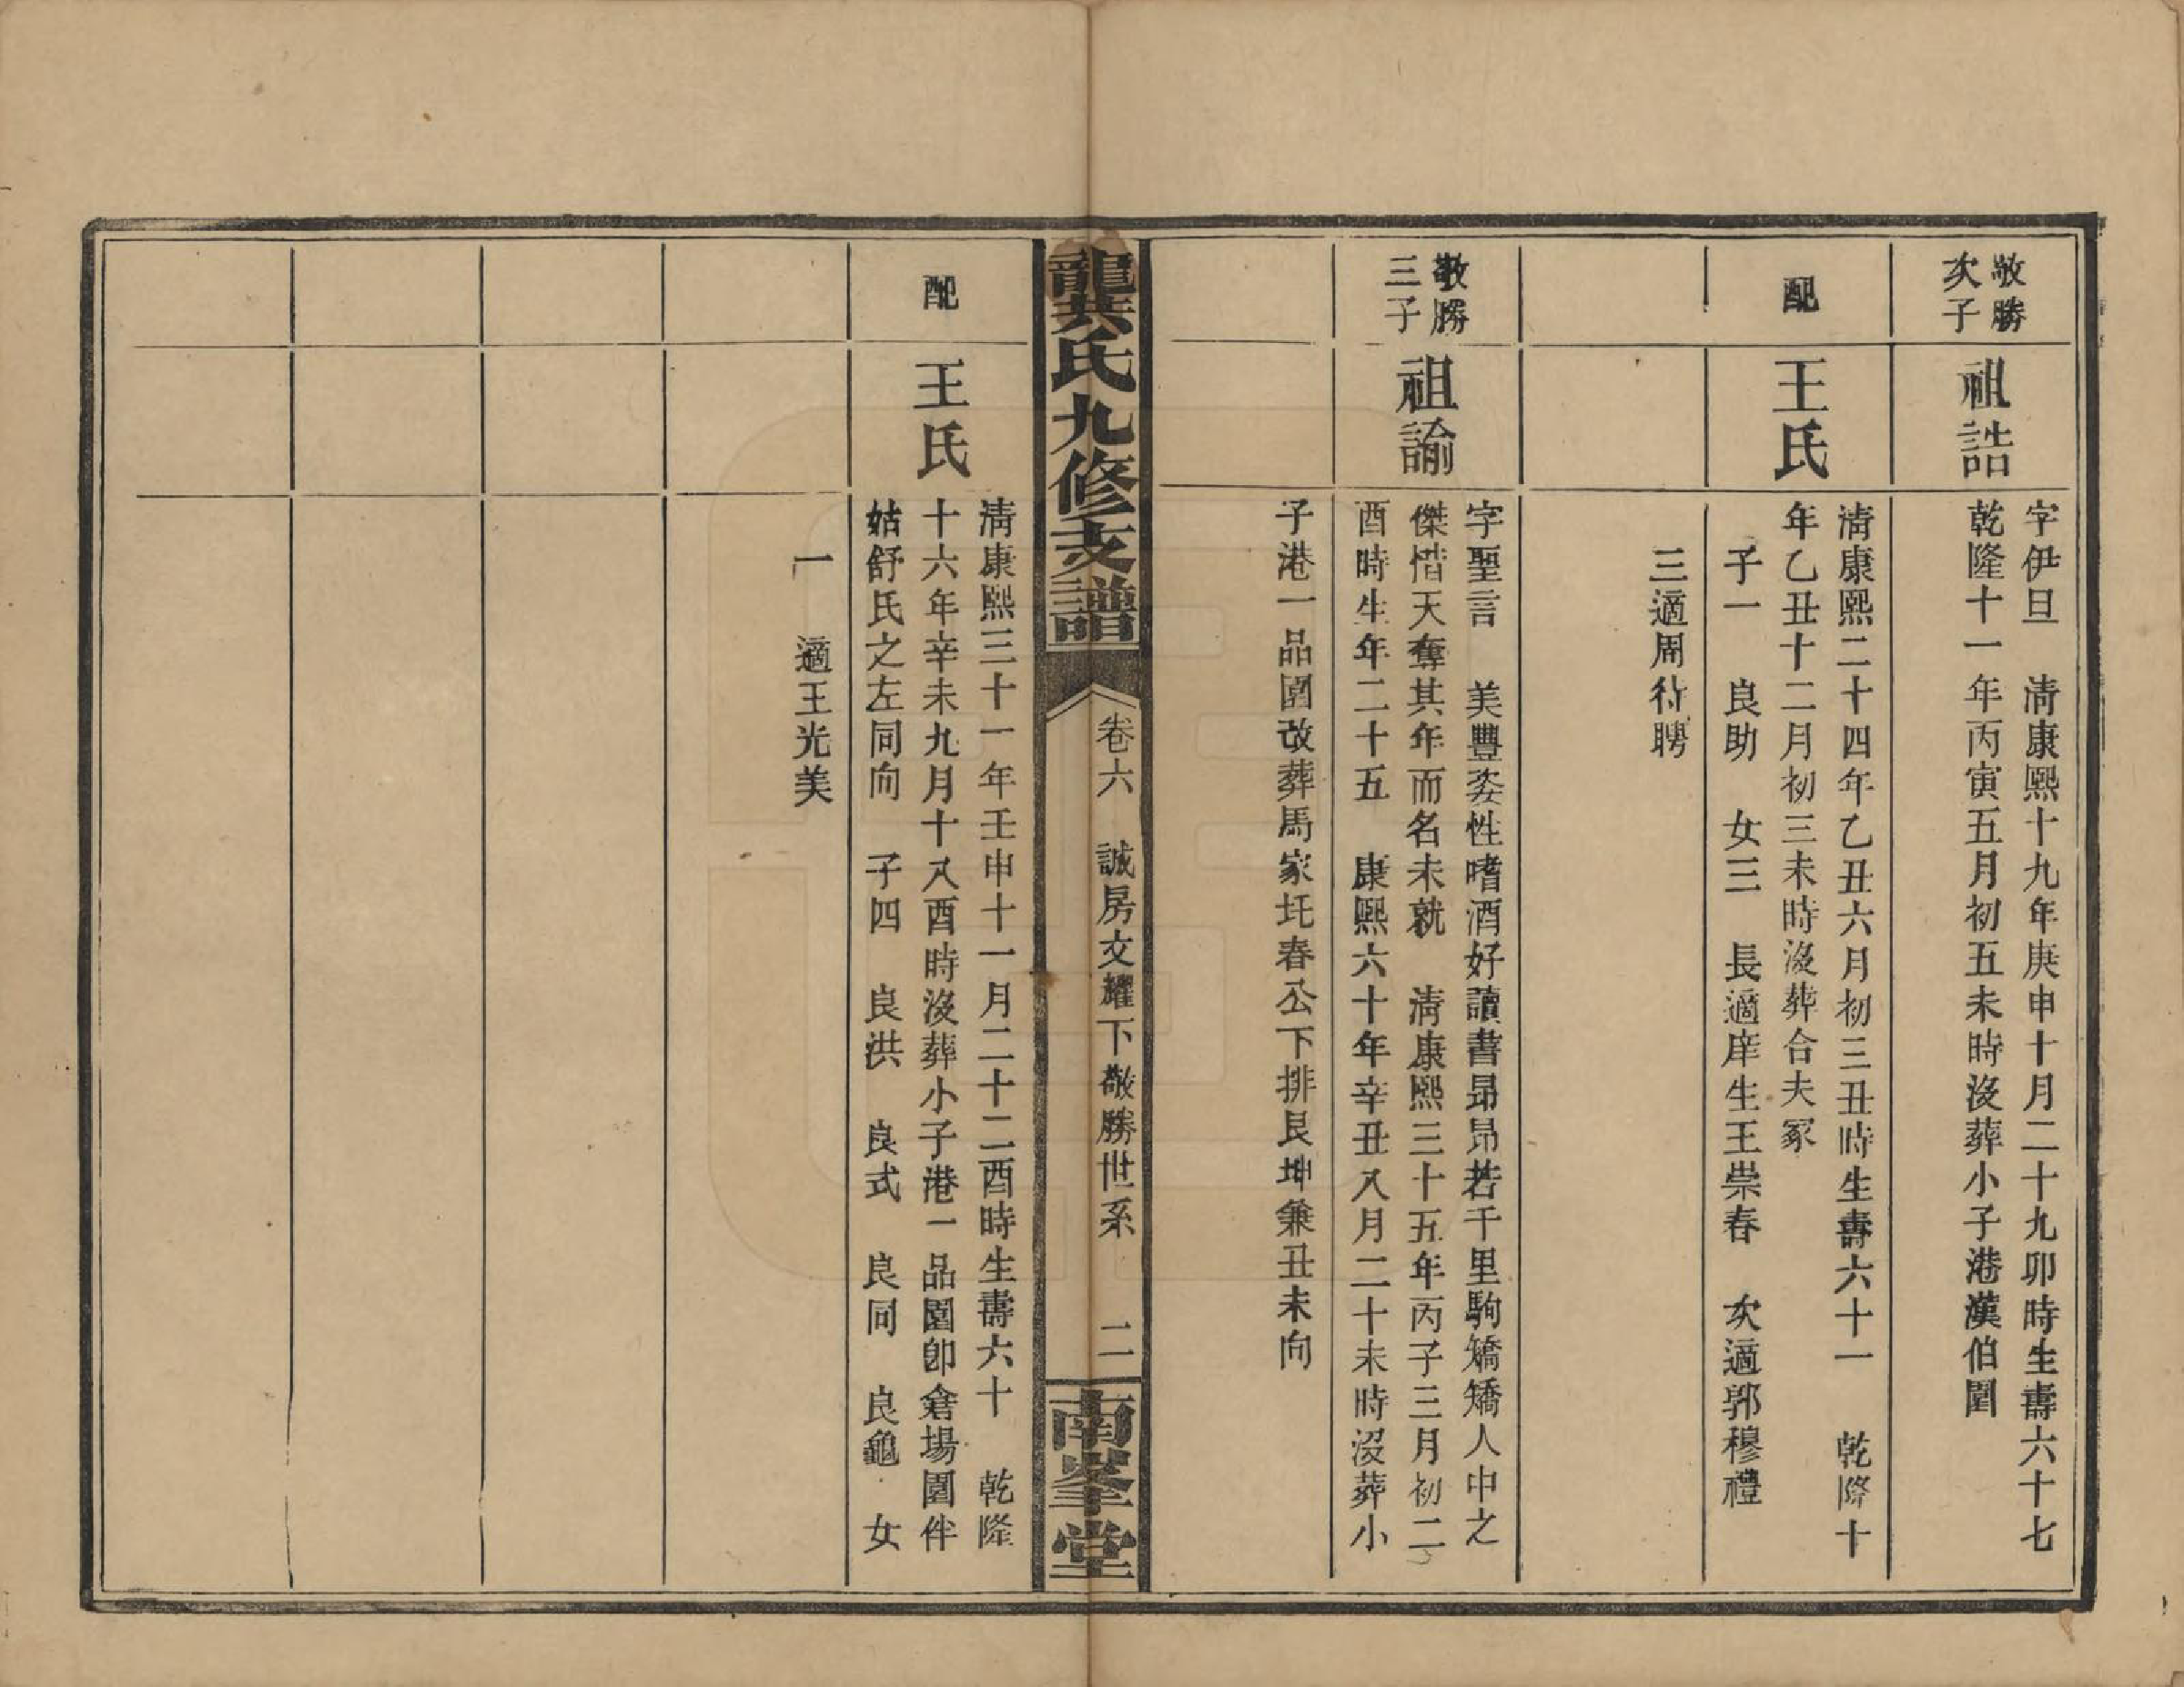 敬勝
次子
祖誥
字伊旦　清康熙十九年庚申十月二十九卯時生壽六十七
乾隆十一年丙寅五月初五未時沒葬小子港漢伯圍
配
王氏
清康熙二十四年乙丑六月初三丑時生壽六十一　乾隆十
年乙丑十二月初三未時沒葬合夫冢
子一　良助　女三　長適庠生王崇春　次適郭穆禮
三適周待聘
敬勝
三子
祖諭
字聖言　美豐姿性嗜酒好讀書昻昻若千里駒矯矯人中之
傑惜天奪其年而名未就　清康熙三十五年丙子三月初二
酉時生年二十五　康熙六十年辛丑八月二十未時沒葬小
子港一品圍改葬馬家圫春公下排艮坤兼丑未向
龔氏九修支譜
卷六　誠房文耀下敬勝世系　二
南峯堂
配
王氏
清康熙三十一年壬申十一月二十二酉時生壽六十　乾隆
十六年辛未九月十八酉時沒葬小子港一品圍卽倉場圍伴
姑舒氏之左同向　子四　良洪　良式　良同　良龜　女
一　適王光美